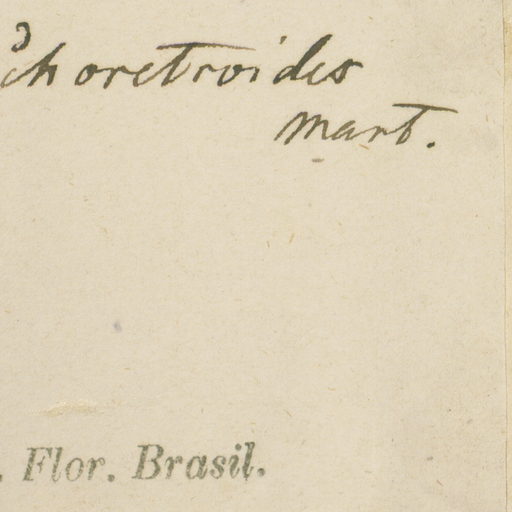 choretroides
Mart.
. Flor. Brasil.